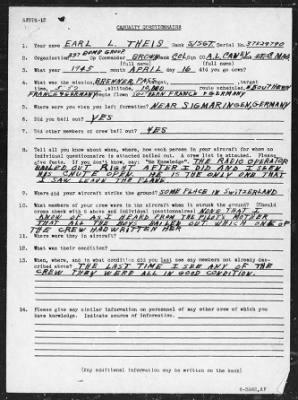 CASUALTY QUESTIONNAIRE
1. Your name EARL L. THEIS Rank S/SGT. Serial No. 37124790
2. Organization 397 BOMB GROUP Gp Commander COL. Sqn CO A.L. CANEY
(full name) (full name)
3. What year 1945 month APRIL day 16 did you go down?
4. What was the mission, BRENNER PASS, target,
altitude, 10,000 route
FRANCE & GERMANY SOUTHERN FRANCE & GERMANY
5. Where were you when you left formation? NEAR SIGMARINGEN, GERMANY
6. Did you bail out? YES
7. Did other members of crew bail out? YES
8. Tell all you know about when, where, how each person in your aircraft for whom no
individual questionnaire is attached bailed out. A crew list is attached. Please
give facts. If you don't know, say: "No Knowledge". THE RADIO OPERATOR
BAILED OUT RIGHT AFTER I DID AND I SEEN
HIS CHUTE OPEN. HE IS THE ONLY ONE THAT
I SAW LEAVE THE PLANE
9. Where did your aircraft strike the ground? SOME PLACE IN SWITZERLAND
10. What members of your crew were in the aircraft when it struck the ground? (Should
cross check with 8 above and individual questionnaires) NONE THAT I
KNOW OF AS I HEARD FROM THE PILOTS MOTHER
THAT ALL THE BOYS BAILED OUT WHICH ONE OF
THE CREW HAD WRITTEN HER
11. Where were they in aircraft?
12. What was their condition?
13. When, where, and in what condition did you last see any members not already des-
cribed above? THE LAST TIME I SEE ANY OF THE
CREW THEY WERE ALL IN GOOD CONDITION.
14. Please give any similar information on personnel of any other crew of which you
have knowledge. Indicate source of information.
(Any additional information may be written on the back)